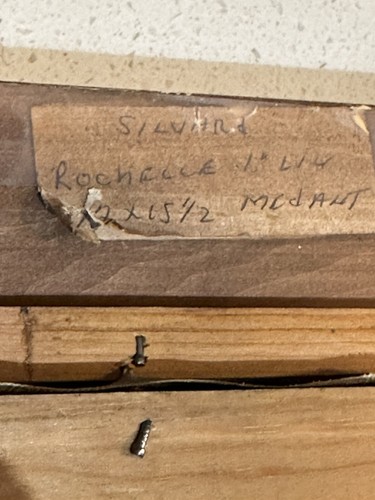 SILVARd
ROCHELLE 1" LIV
X7 X 15 1/2 MEd ANT